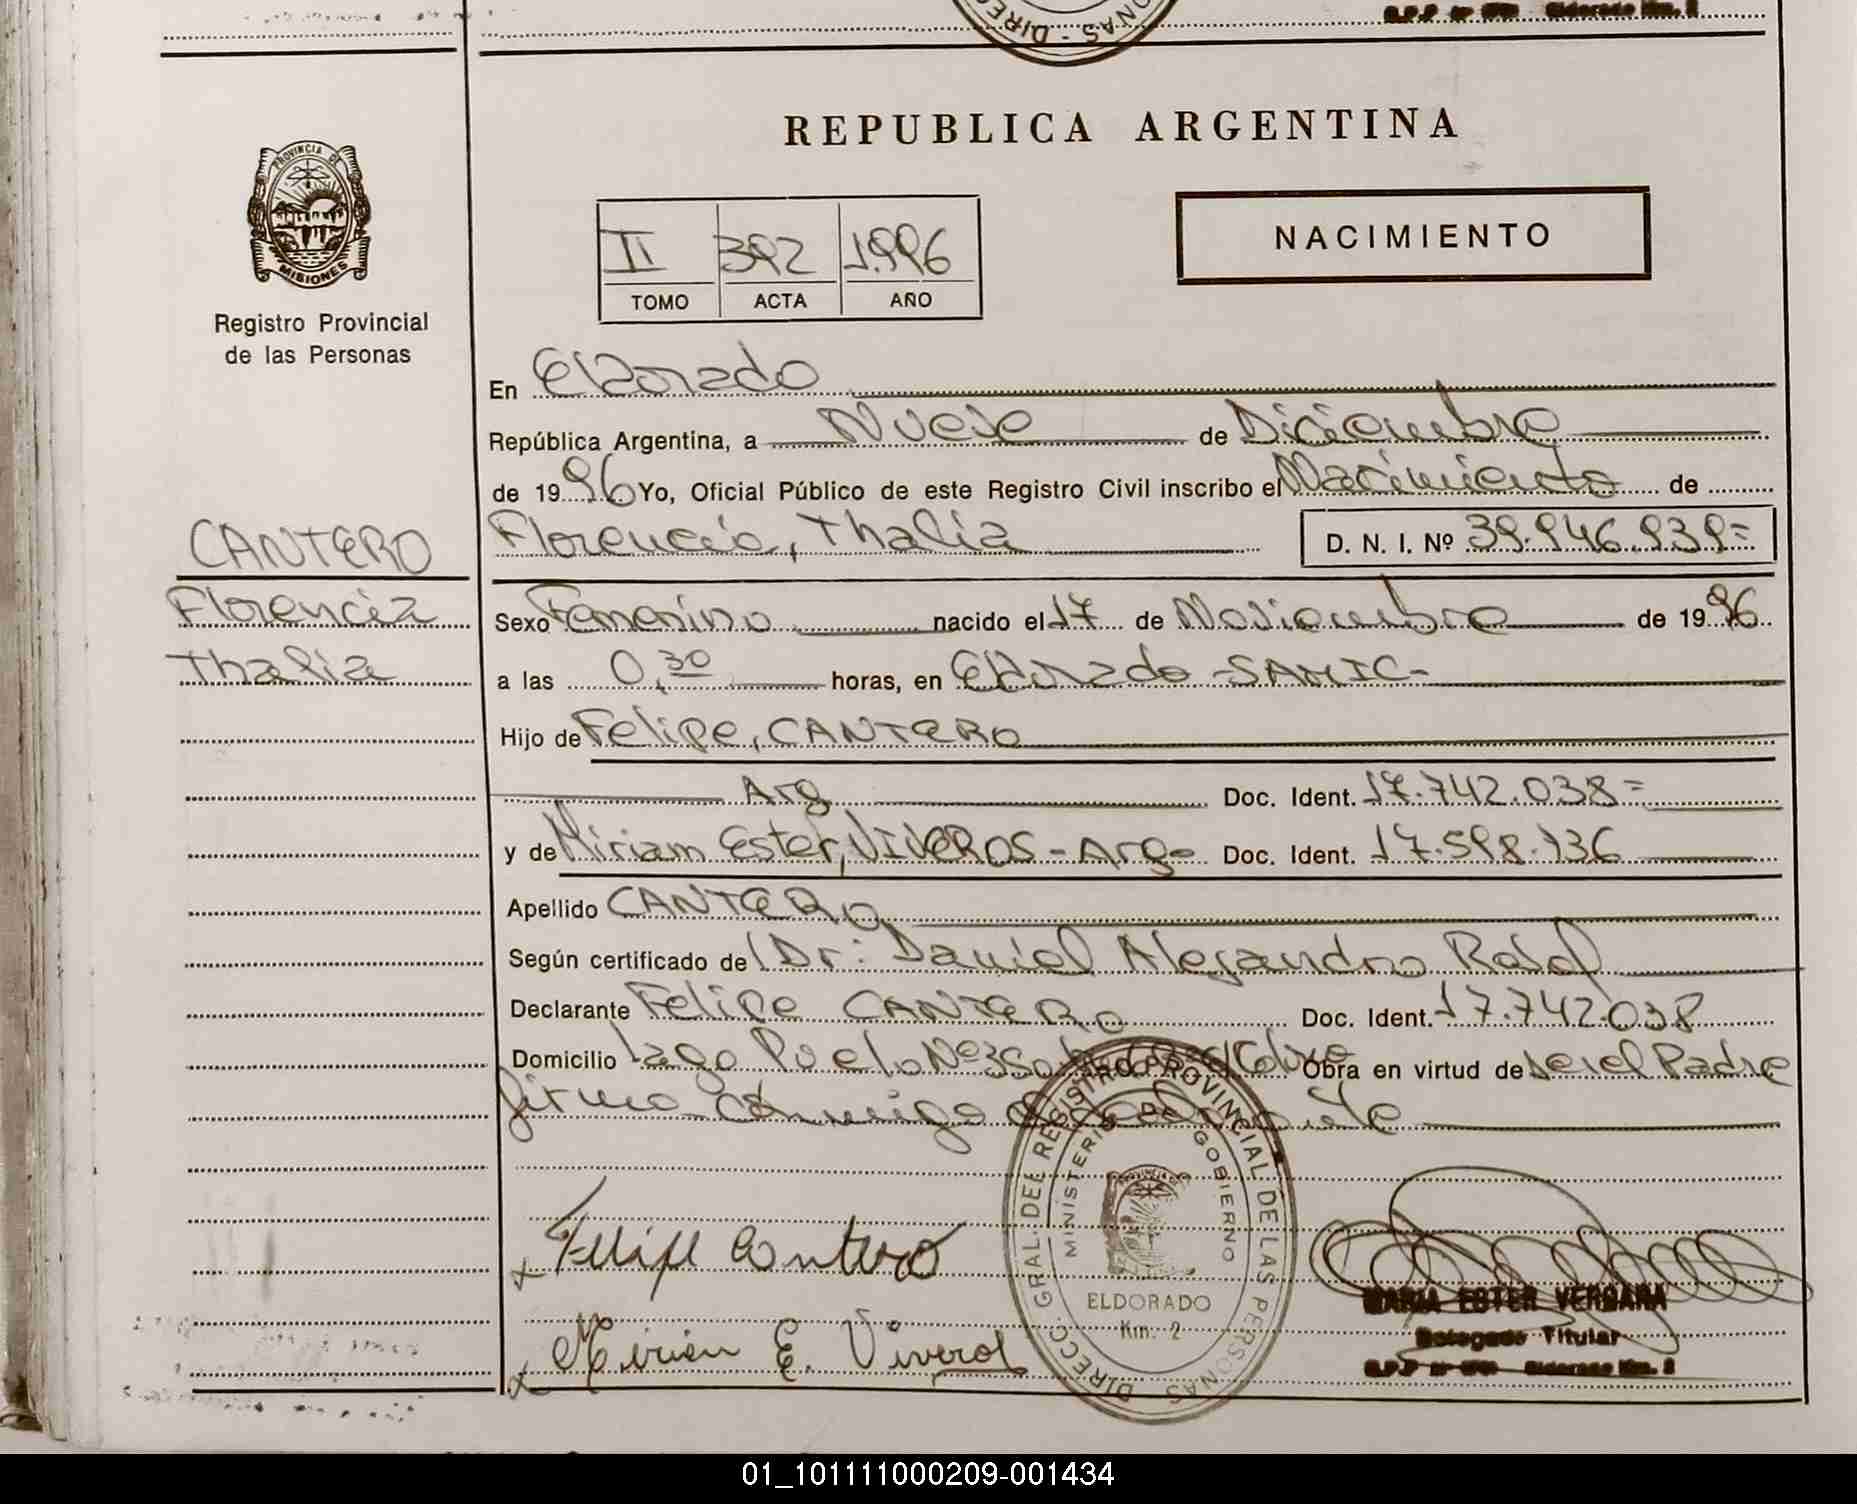 REPUBLICA ARGENTINA
PROVINCIA DE
MISIONES
Registro Provincial
de las Personas
II 392 1.996
TOMO ACTA AÑO
NACIMIENTO
En Eldorado
República Argentina, a Nueve de Diciembre
de 1996 Yo, Oficial Público de este Registro Civil inscribo el Nacimiento de
CANTERO
Florencia, Thalia D. N. I. Nº 39.946.939=
Florencia
Sexo Femenino nacido el 17 de Noviembre de 1996
Thalia
a las 0,30 horas, en Eldorado -SAMIC-
Hijo de Felipe, CANTERO
Arg Doc. Ident. 17.742.038=
y de Miriam Ester, VIVEROS - Arg- Doc. Ident. 17.598.136
Apellido CANTERO
Según certificado del Dr: Daniel Alejandro
Declarante Felipe CANTERO Doc. Ident. 17.742.038
Domicilio Lago Puelo Nº Obra en virtud de ser el Padre
firma conmigo
Felipe Cantero
Miriam E. Viveros
DIRECC. GRAL. DEL REGISTRO PROVINCIAL DE LAS PERSONAS
MINISTERIO DE GOBIERNO
ELDORADO
Km. 2
MARIA ESTER VERGARA
Delegada Titular
Eldorado Km. 2
01_101111000209-001434